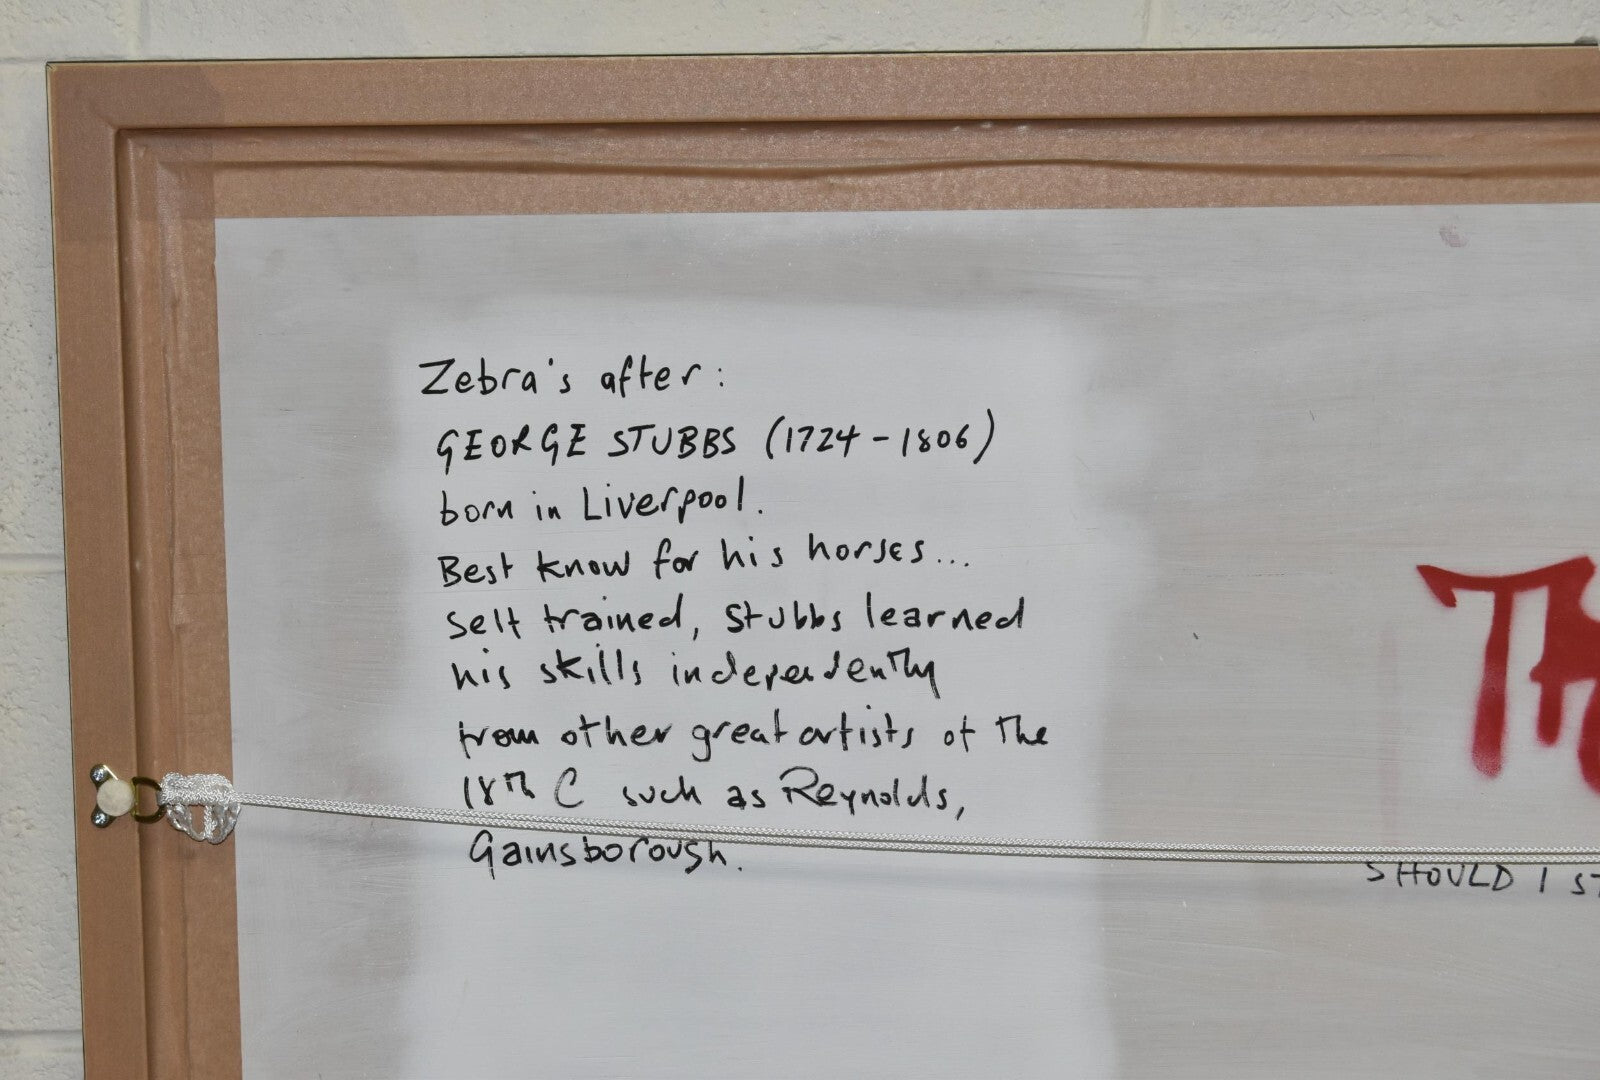 Zebra's after:
GEORGE STUBBS (1724-1806)
born in Liverpool.
Best know for his horses...
self trained, Stubbs learned
his skills independently
from other great artists of the
18th C such as Reynolds,
Gainsborough.
Th
SHOULD I ST